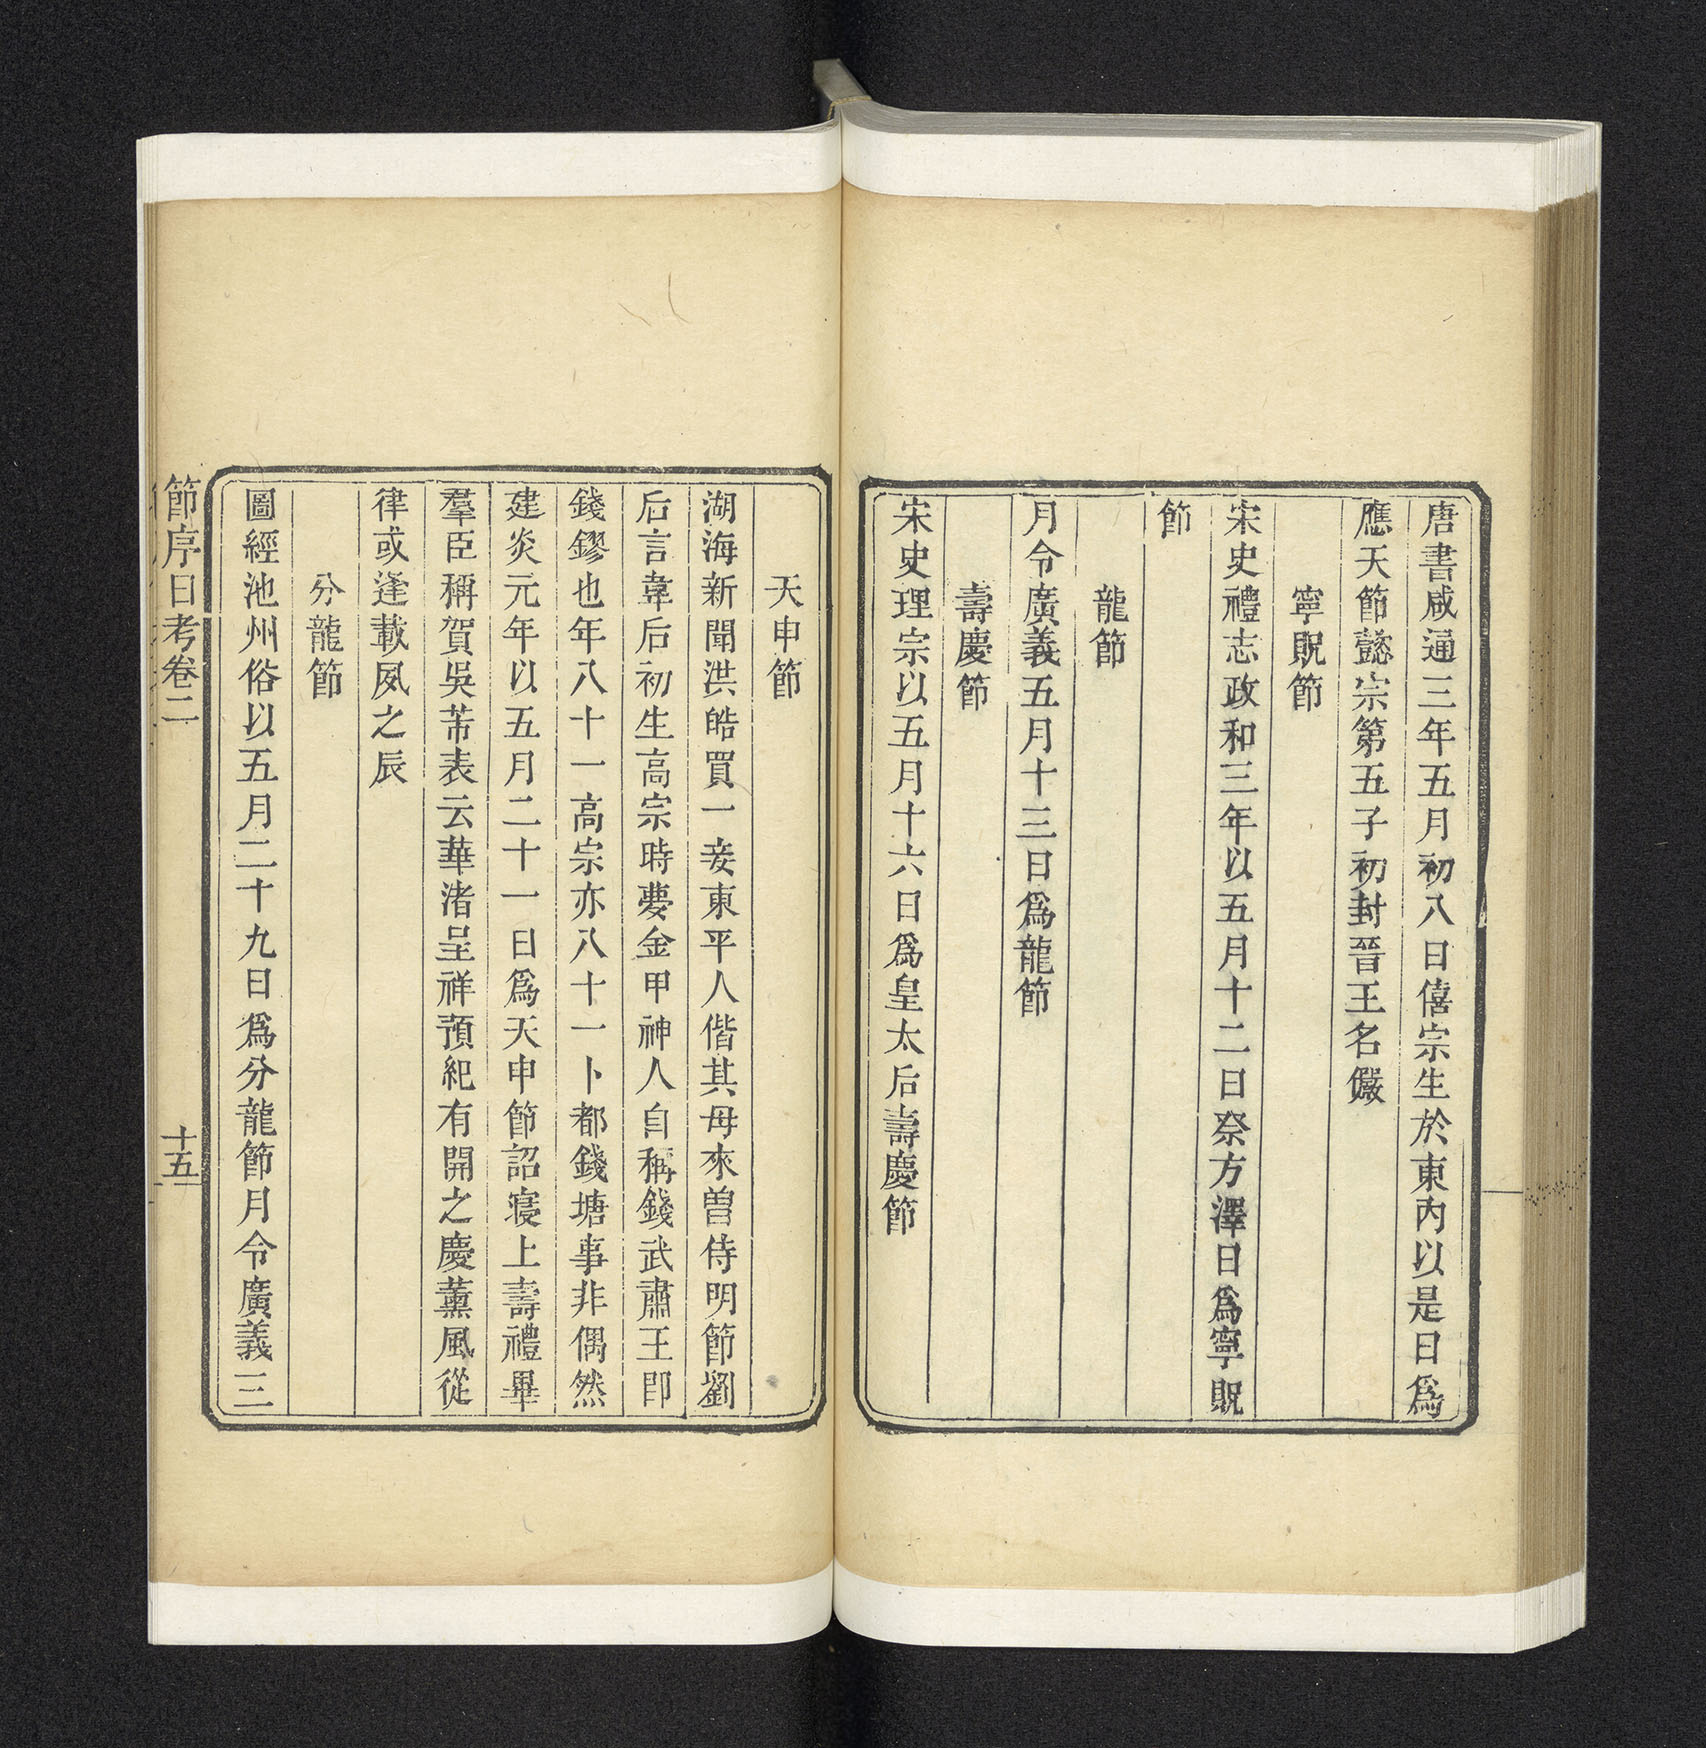 唐書咸通三年五月初八日僖宗生於東內以是日爲
應天節懿宗第五子初封晉王名儼
寧貺節
宋史禮志政和三年以五月十二日祭方澤日爲寧貺
節
龍節
月令廣義五月十三日爲龍節
壽慶節
宋史理宗以五月十六日爲皇太后壽慶節
天申節
湖海新聞洪皓買一妾東平人偕其母來曾侍明節劉
后言韋后初生高宗時夢金甲神人自稱錢武肅王卽
錢鏐也年八十一高宗亦八十一卜都錢塘事非偶然
建炎元年以五月二十一日爲天申節詔寢上壽禮畢
羣臣稱賀吳芾表云華渚呈祥預紀有開之慶薰風從
律或逢載夙之辰
分龍節
圖經池州俗以五月二十九日爲分龍節月令廣義三
節序日考卷二
十五